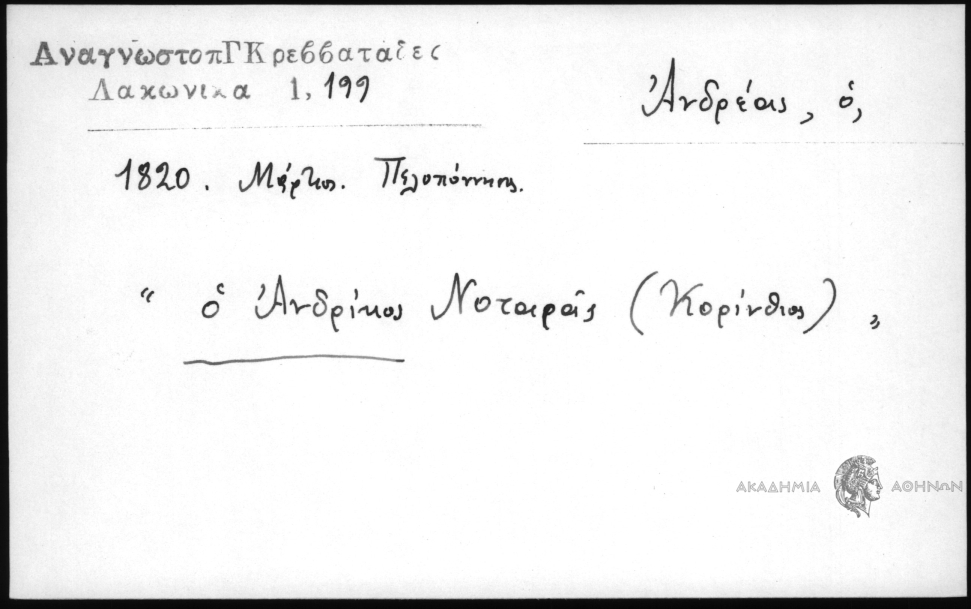 ΑναγνωστοπΓΚρεββαταδες
Λακωνικα 1, 199
Ἀνδρέας, ὁ,
1820. Μάρτιος. Πελοπόννησος.
“ ὁ Ἀνδρίκος Νοταρᾶς (Κορίνθιος) „
ΑΚΑΔΗΜΙΑ ΑΘΗΝΩΝ